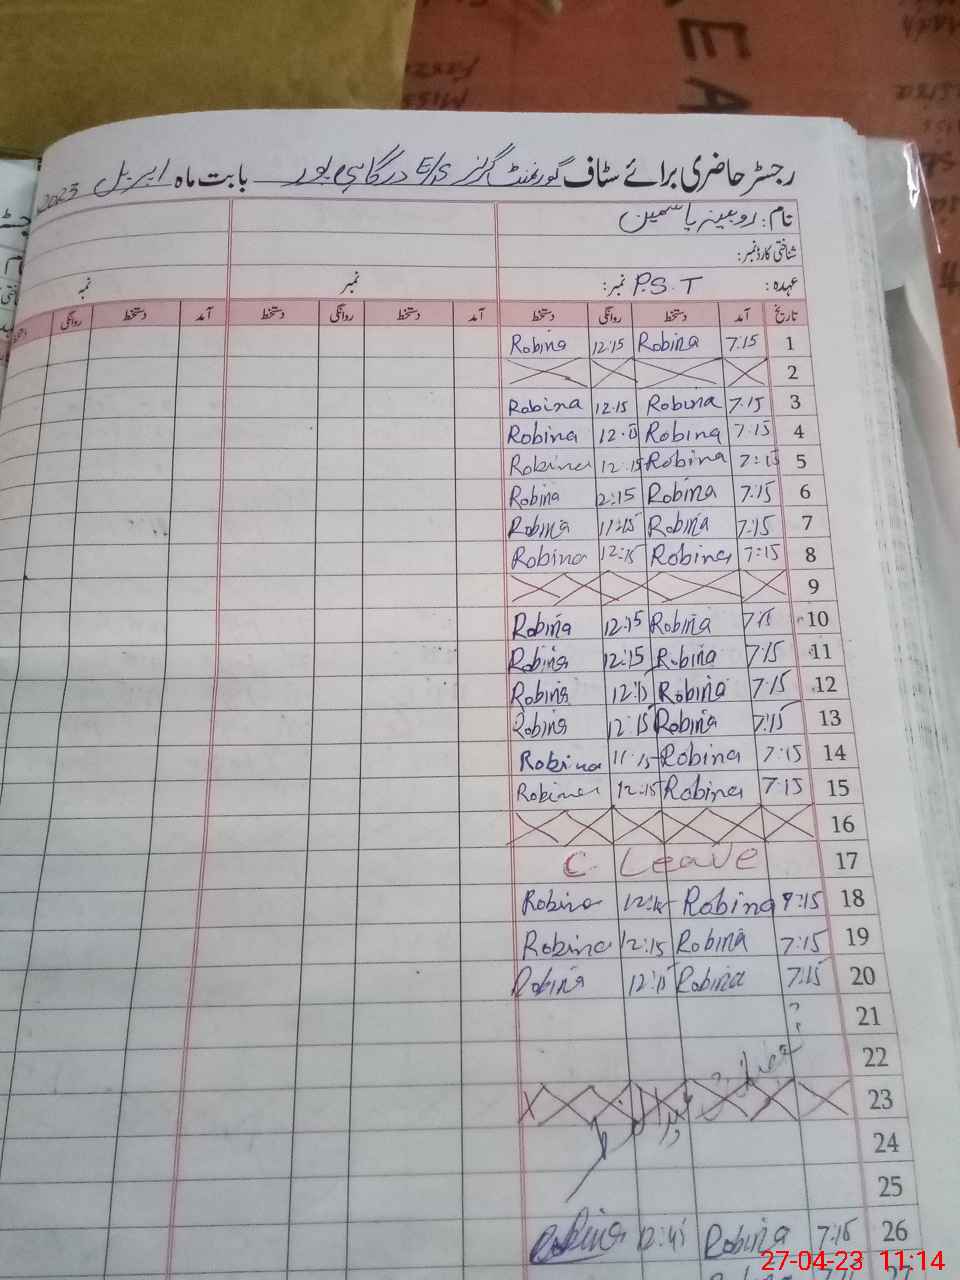 رجسٹر حاضری برائے سٹاف گورنمنٹ گرلز E/S درگاہی پور بابت ماہ اپریل 2023
نام: روبینہ یاسمین
شناختی کارڈ نمبر:
عہدہ: P.S.T نمبر: نمبر نمبر
تاریخ آمد دستخط روانگی دستخط آمد دستخط روانگی دستخط آمد دستخط روانگی
1 7:15 Robina 12:15 Robina
2
3 7:15 Robina 12:15 Robina
4 7:15 Robina Robina
5 7:15 Robina 12:15 Robina
6 7:15 Robina 12:15 Robina
7 7:15 Robina 11:15 Robina
8 7:15 Robina 12:15 Robina
9
10 Robina 12:15 Robina
11 7:15 Robina 12:15 Robina
12 7:15 Robina Robina
13 7:15 Robina 12:15 Robina
14 7:15 Robina 11:15 Robina
15 7:15 Robina 12:15 Robina
16
17 C. Leave
18 Robina Robina
19 7:15 Robina 12:15 Robina
20 7:15 Robina Robina
21
22
23 عید الفطر
24
25
26 7:15 Robina Robina
27-04-23 11:14